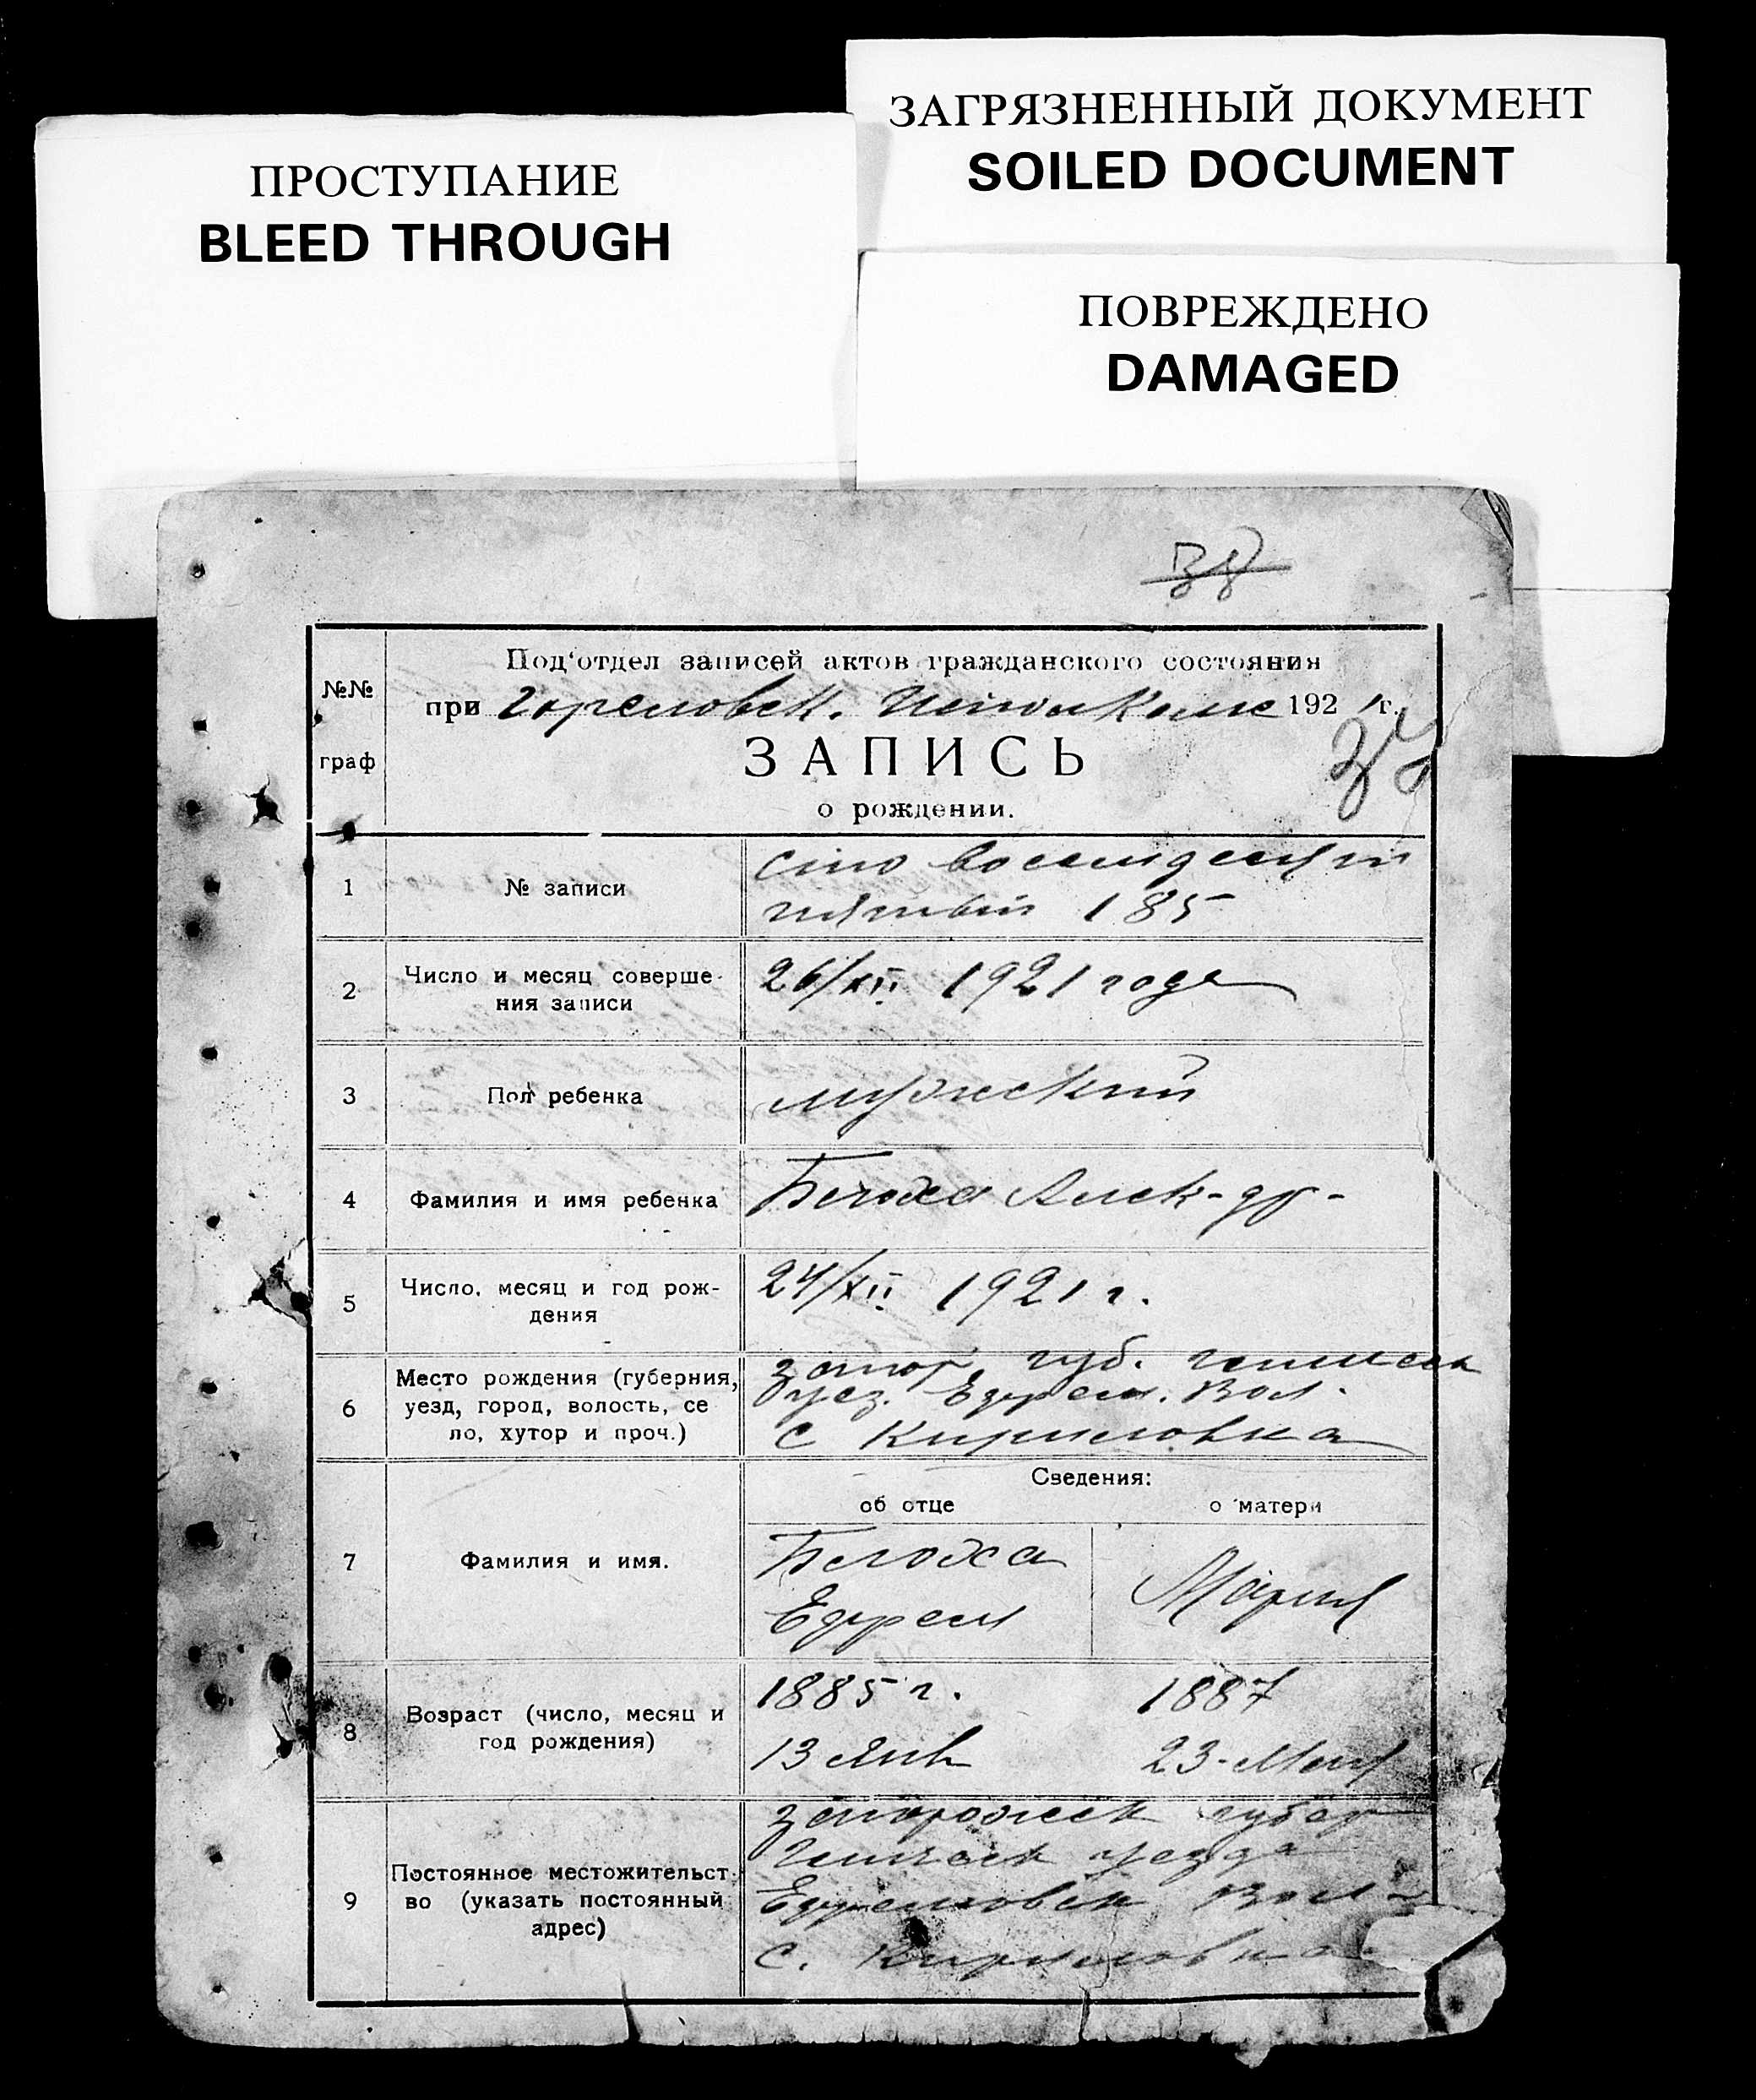 ПРОСТУПАНИЕ
BLEED THROUGH
ЗАГРЯЗНЕННЫЙ ДОКУМЕНТ
SOILED DOCUMENT
ПОВРЕЖДЕНО
DAMAGED
38
№№
граф
Под‘отдел записей актов гражданского состояния
при Гореловск. 1921 г.
37
ЗАПИСЬ
о рождении.
1
№ записи
сто восемдесят
пятый 185
2
Число и месяц соверше-
ния записи
26/XII 1921 года
3
Пол ребенка
мужский
4
Фамилия и имя ребенка
Алек-др-
5
Число, месяц и год рож-
дения
24/XII 1921 г.
6
Место рождения (губерния,
уезд, город, волость, се
ло, хутор и проч.)
запор губ.
уез. Ефрем. Вол.
с Кириловка
Сведения:
об отце
о матери
7
Фамилия и имя.
Ефрем
Мария
8
Возраст (число, месяц и
год рождения)
1885 г.
13 Янв
1887
23-
9
Постоянное местожительст-
во (указать постоянный
адрес)
запорожск губер
уезда
Ефремовск Вол
с. Кириловка